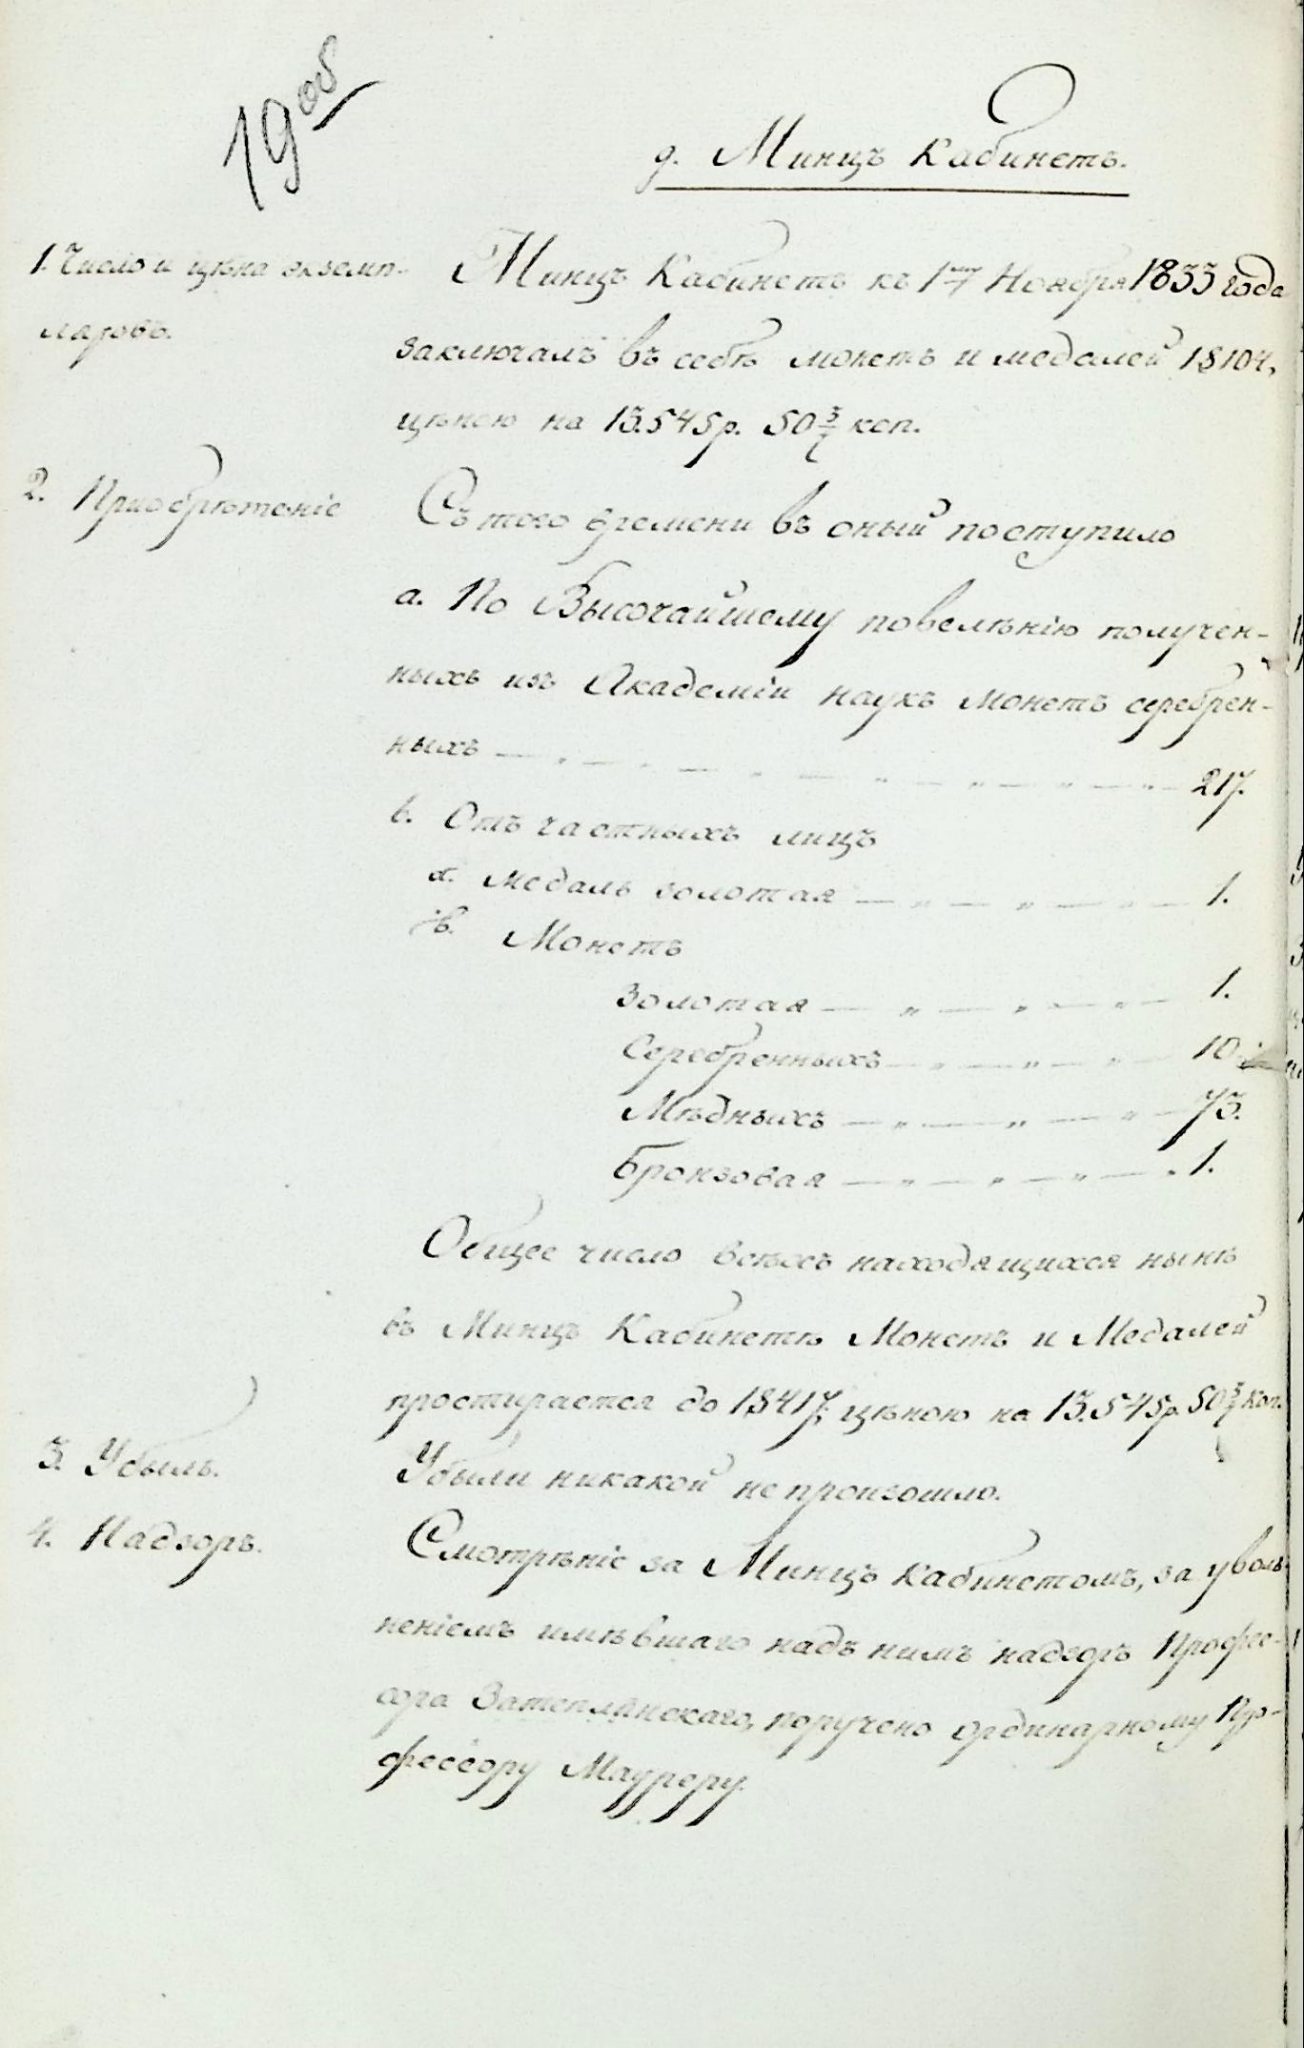 19об
д. Минцъ Кабинетъ.
1. Число и цѣна экземп-
ляровъ.
Минцъ Кабинетъ къ 1му Ноября 1833 года
заключалъ въ себѣ монетъ и медалей 18104,
цѣною на 13.545 р. 50 3/7 коп.
2. Приобрѣтеніе
Съ того времени въ оный поступило
а. По Высочайшему повелѣнію получен-
ныхъ изъ Академіи наукъ монетъ серебрен-
ныхъ — „ — „ — „ — „ — „ — „ — 217.
b. Отъ частныхъ лицъ
α. медаль золотая — „ — „ — „ — 1.
Монетъ
Золотая — „ — „ — „ — 1.
Серебренныхъ — „ — „ — „ — 10.
Мѣдныхъ — „ — „ — „ — 73.
Бронзовая — „ — „ — „ — „ 1.
Общее число всѣхъ находящихся нынѣ
въ Минцъ Кабинетѣ Монетъ и Медалей
простирается до 18417, цѣною на 13.545 р. 50 3/7 коп.
3. Убыль.
Убыли никакой не произошло.
4. Надзоръ.
Смотрѣніе за Минцъ Кабинетомъ, за уволь-
неніемъ имѣвшаго надъ нимъ надзоръ Профес-
сора Затеплинскаго, поручено ординарному Про-
фессору Мауреру.